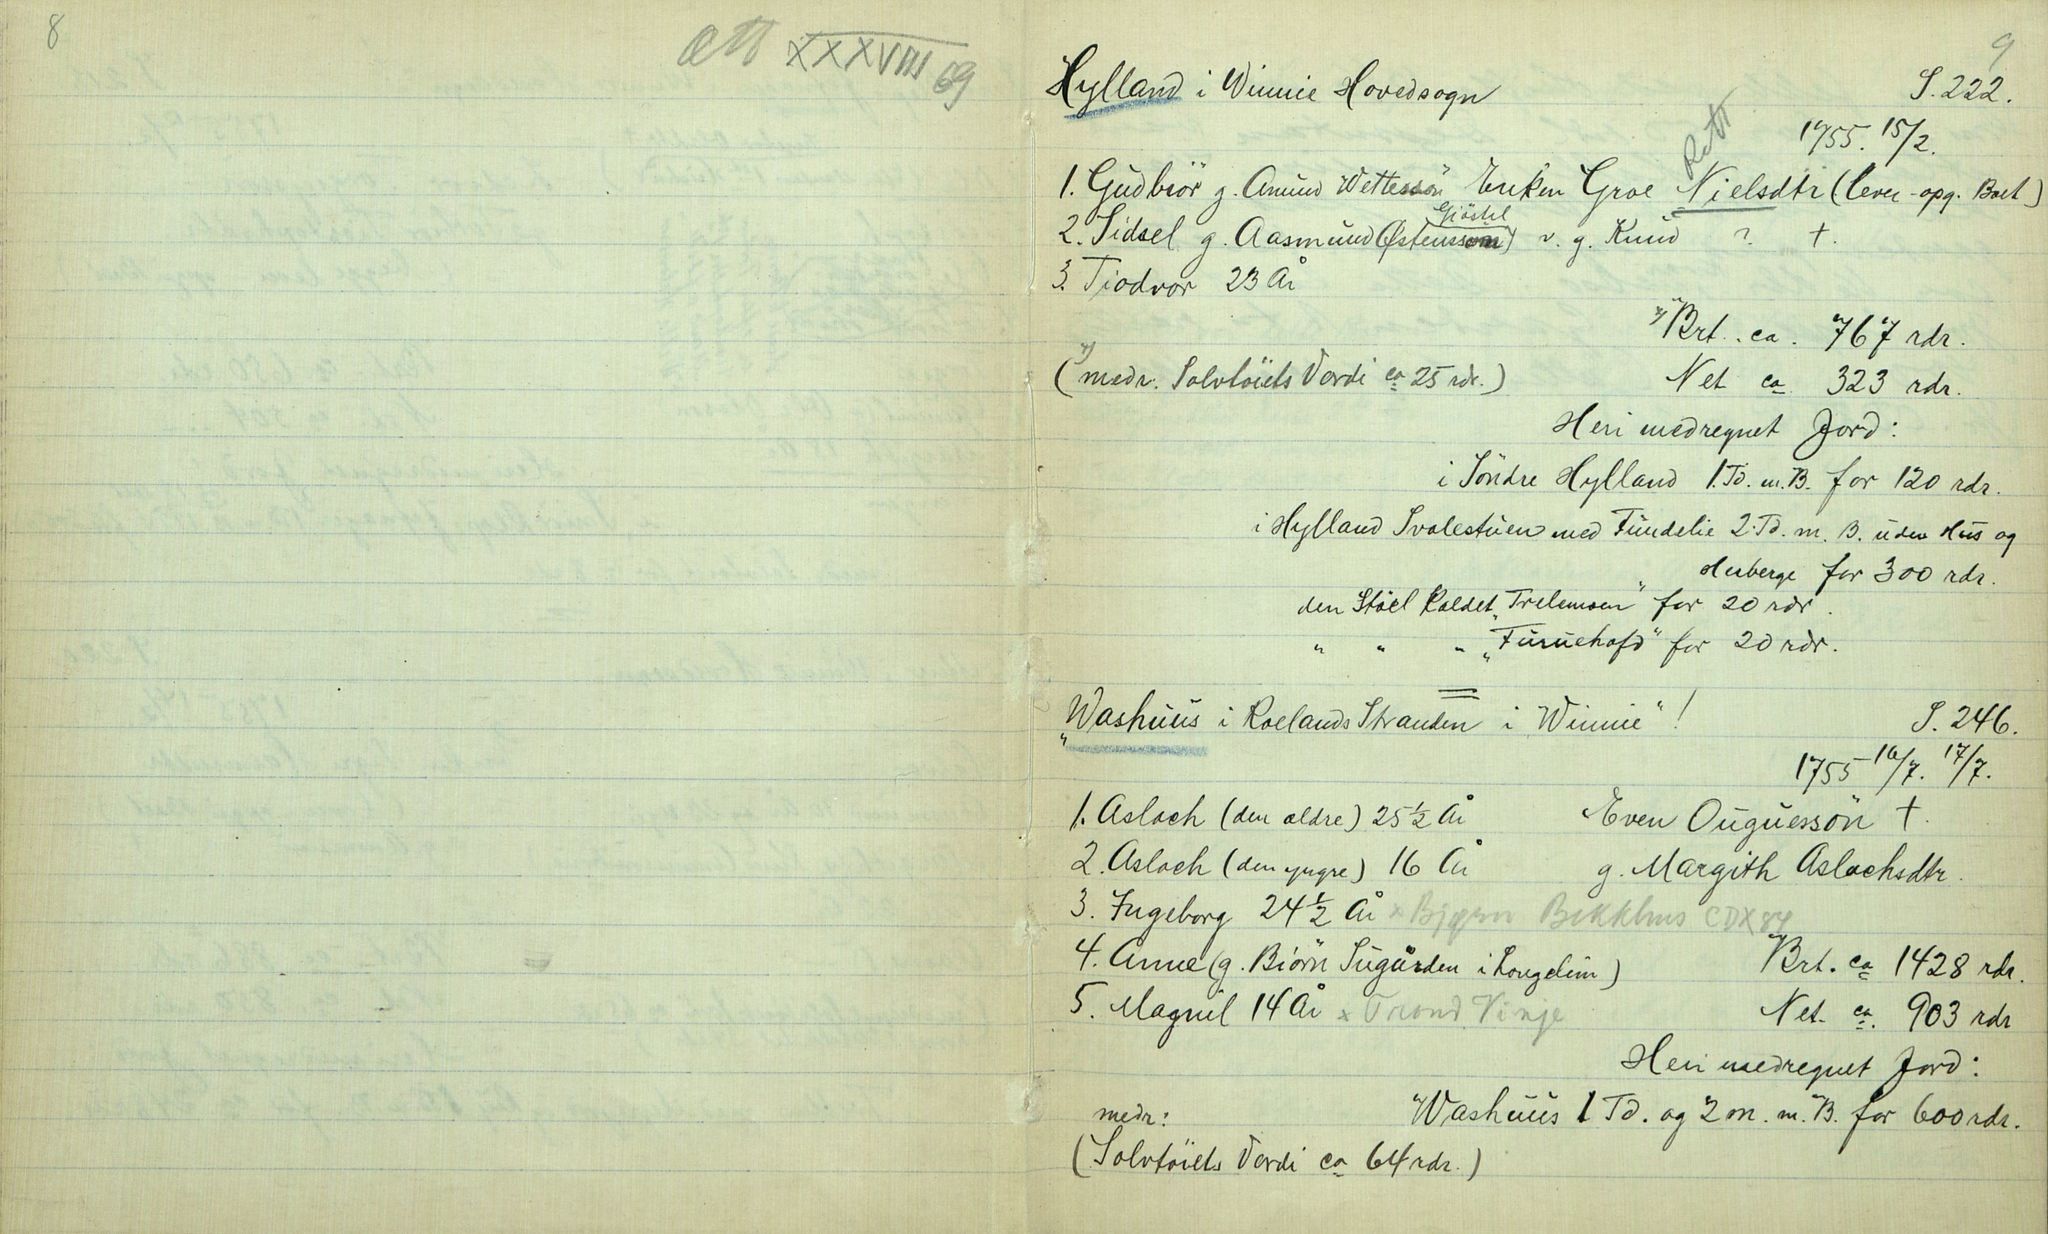 8
ætt XXXVIII 69
9
Hylland i Winnie Hovedsogn S. 222.
1755. 15/2.
Rett
1. Gudbiör g. Amund Wettessön Enken Groe Nielsdtr (lever - opg. Boet)
Giöstel
2. Sidsel g. Aasmund (Østenssøn) v. g. Knud ? †.
3. Tiodvor 23 År
Brt. ca. 767 rdr.
(medr. Solvtöiets Verdi ca 25 rdr.) Net ca 323 rdr.
Heri medregnet Jord:
i Söndre Hylland 1. Td. m. B. for 120 rdr.
i Hylland Svalestuen med Fundelie 2 Td. m. B. uden Hus og
Herberge for 300 rdr.
den Stöel kaldet „Trelemoen" for 20 rdr.
" " " „Furuehofd" for 20 rdr.
„Washuus i Roelands Stranden i Winnie"! S. 246.
1755 16/7. 17/7.
1. Asloch (den ældre) 25 ½ År Even Ouguessön †.
2. Asloch (den yngre) 16 År g. Margith Aslochsdtr.
3. Ingeborg 24 ½ År x Bjørn Bekkhus CDX 84
4. Anne (g. Biörn Sugården i Lougeliim) Brt. ca 1428 rdr.
5. Magnil 14 År x Trond Vinje Net. ca. 903 rdr
Heri medregnet Jord:
medr: Washuus 1 Td. og 2 m. m. B. for 600 rdr.
(Solvtöiets Verdi ca 64 rdr.)